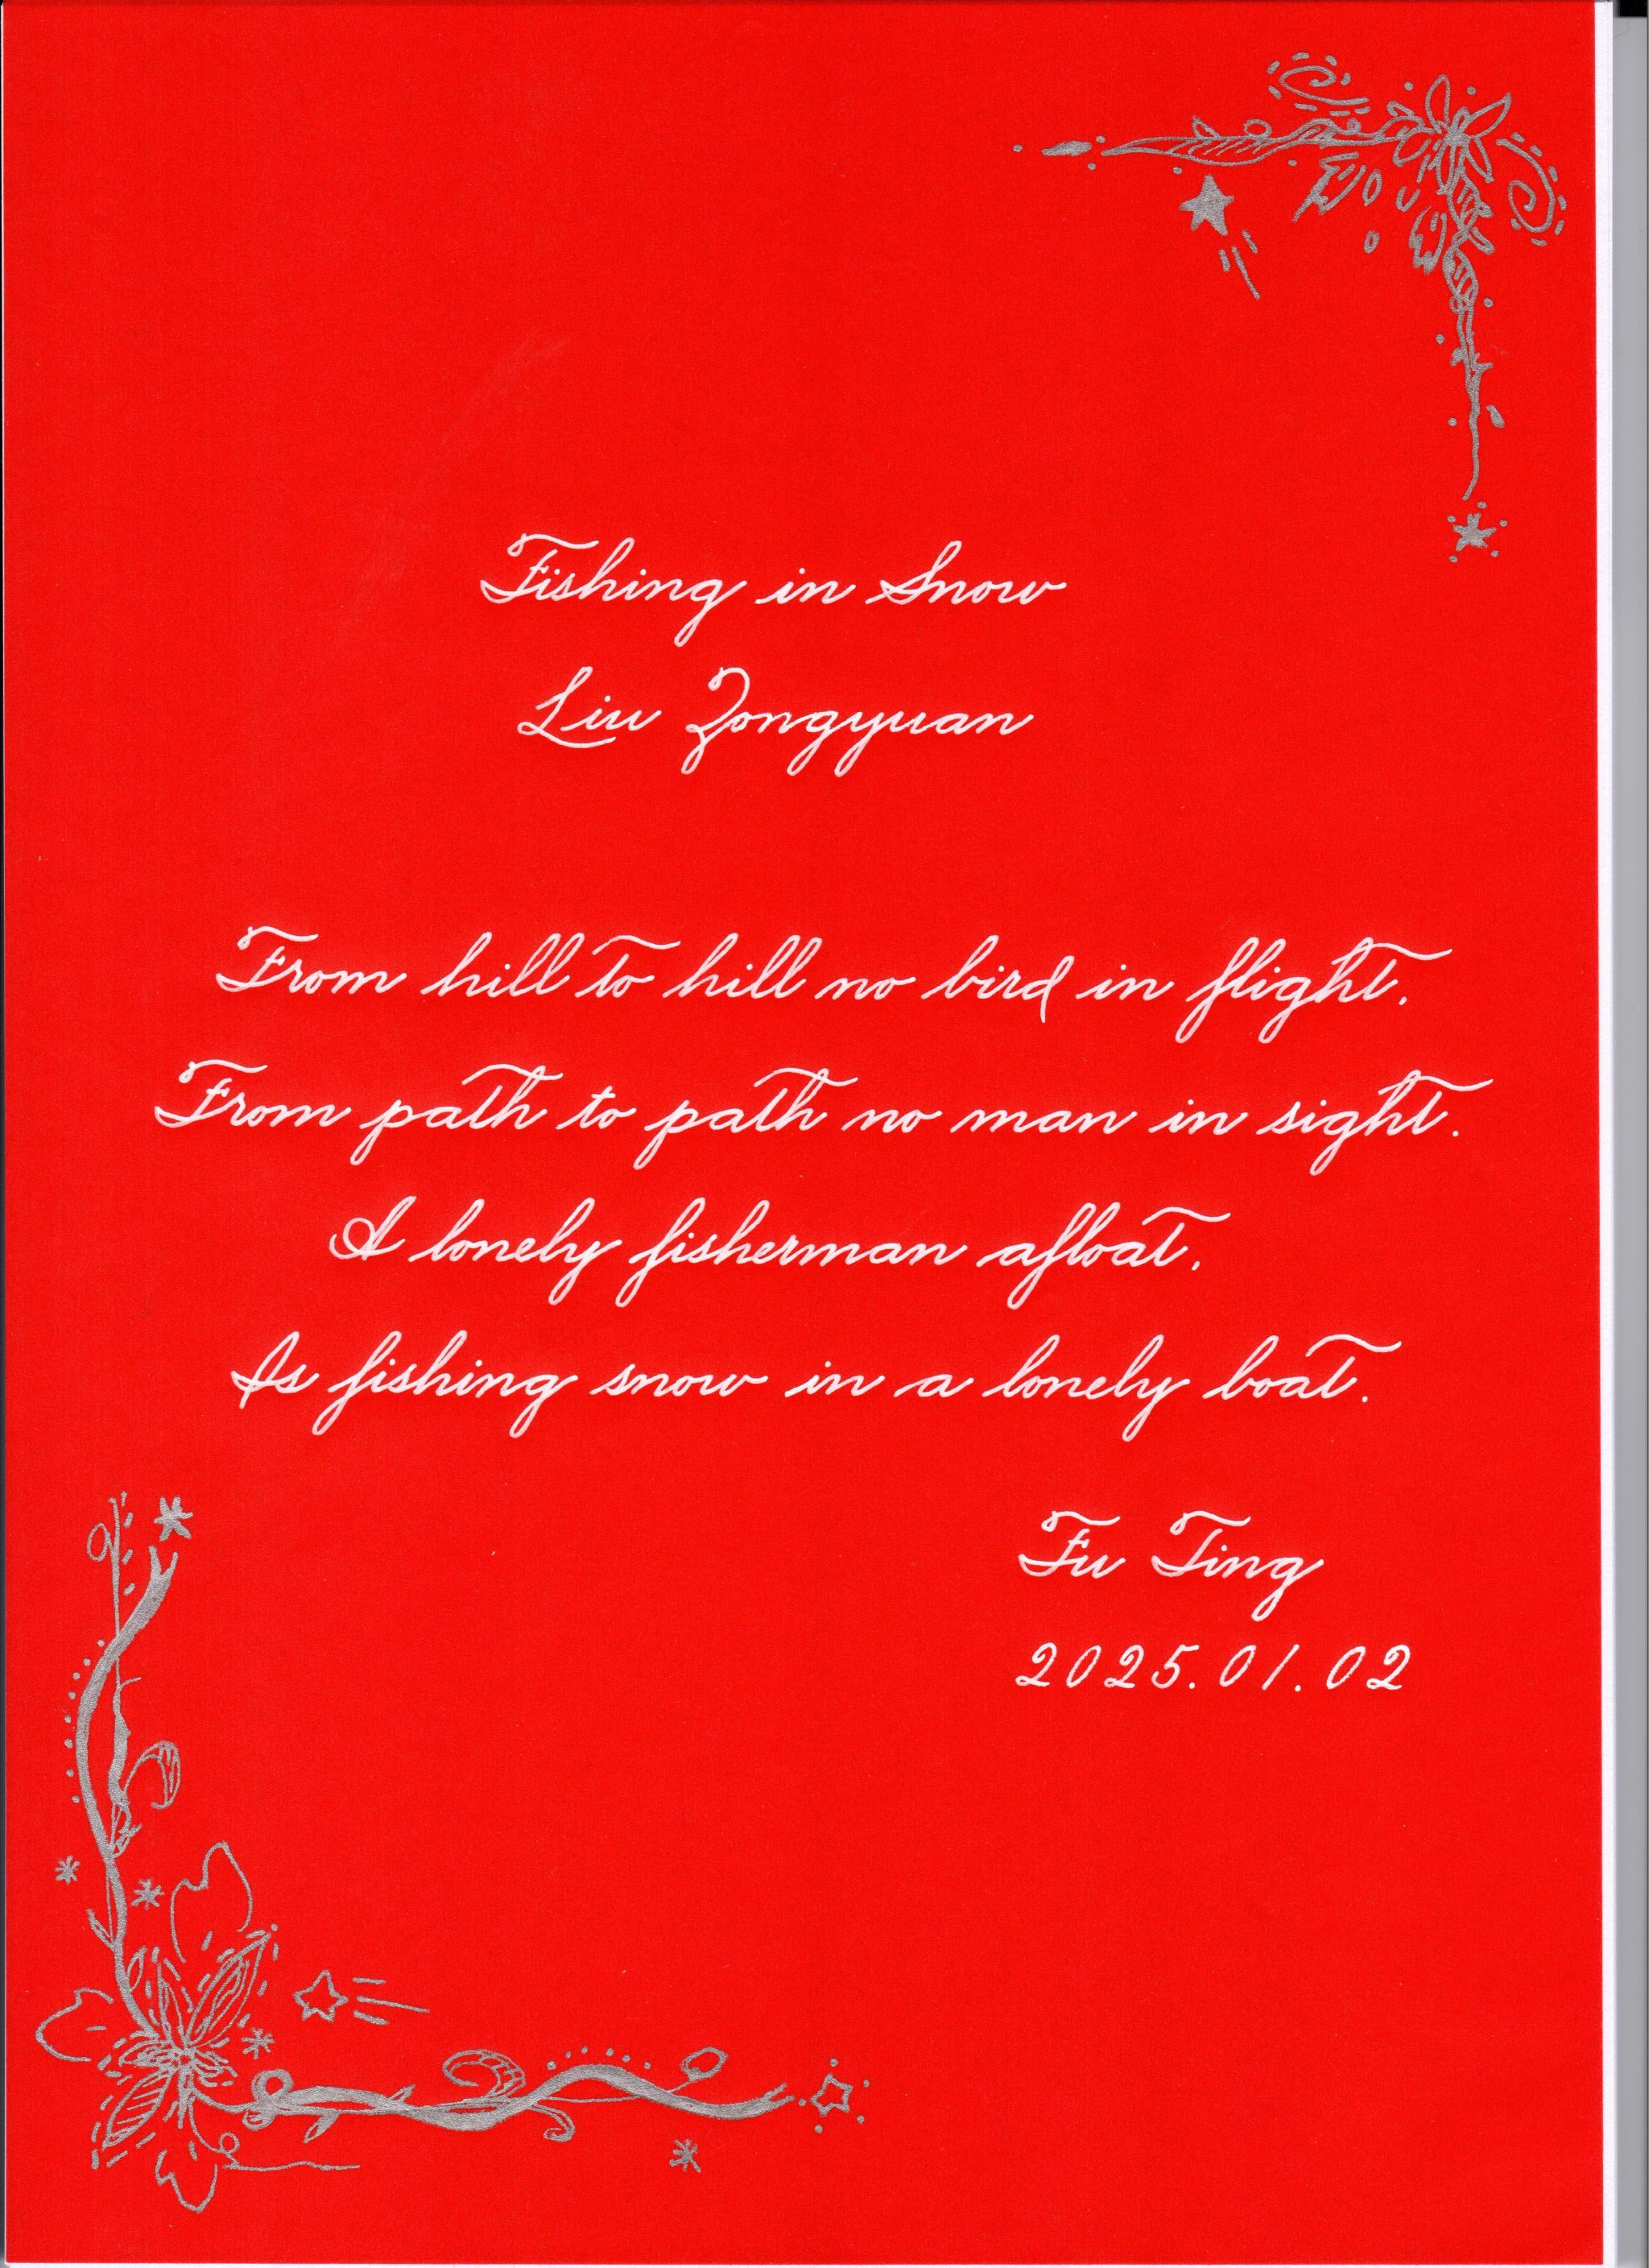 Fishing in Snow
Liu Zongyuan
From hill to hill no bird in flight.
From path to path no man in sight.
A lonely fisherman afloat,
Is fishing snow in a lonely boat.
Fu Ting
2025.01.02